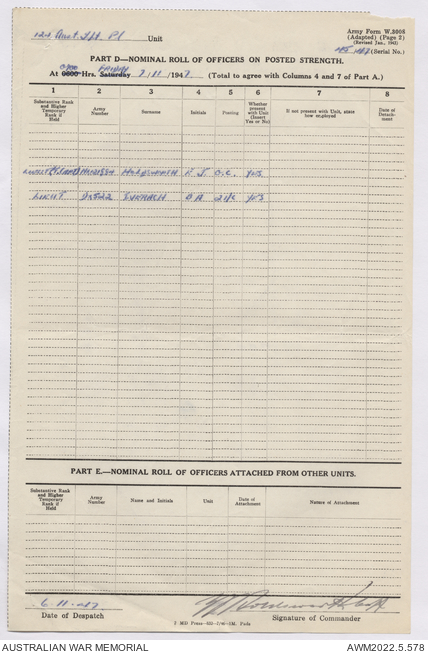 Army Form W.3008
(Adapted) (Page 2)
(Revised Jan., 1942)
(Serial No.)
Unit
PART D—NOMINAL ROLL OF OFFICERS ON POSTED STRENGTH.
At 0600 Hrs. Saturday 7/11/1947 (Total to agree with Columns 4 and 7 of Part A.)
1 2 3 4 5 6 7 8
Substantive Rank and Higher Temporary Rank if Held
Army Number
Surname
Initials
Posting
Whether present with Unit (Insert Yes or No)
If not present with Unit, state how employed
Date of Detachment
O.C. YES
LIEUT YES
PART E.—NOMINAL ROLL OF OFFICERS ATTACHED FROM OTHER UNITS.
Substantive Rank and Higher Temporary Rank if Held
Army Number
Name and Initials
Unit
Date of Attachment
Nature of Attachment
6.11.47
Date of Despatch
Signature of Commander
AUSTRALIAN WAR MEMORIAL
AWM2022.5.578